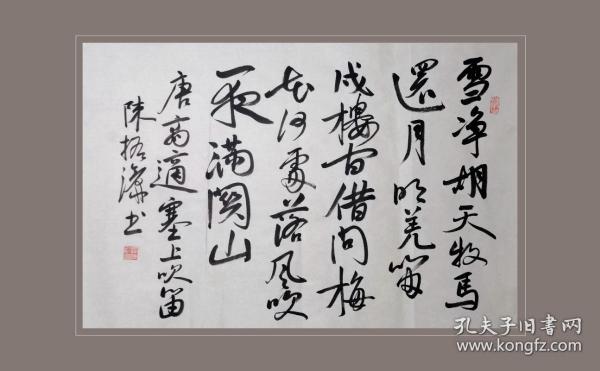 雪净胡天牧馬
還月明羌笛
戍樓间借问梅
花何處落风吹
一夜满関山
唐高適塞上吹笛
陈书
孔夫子旧书网
www.kongfz.com